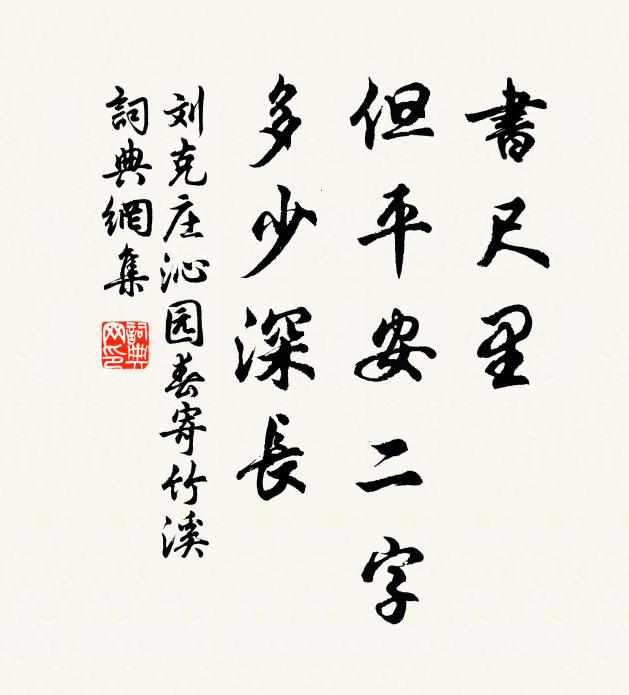 書尺里
但平安二字
多少深長
刘克庄沁园春寄竹溪
詞典網集
詞典网印